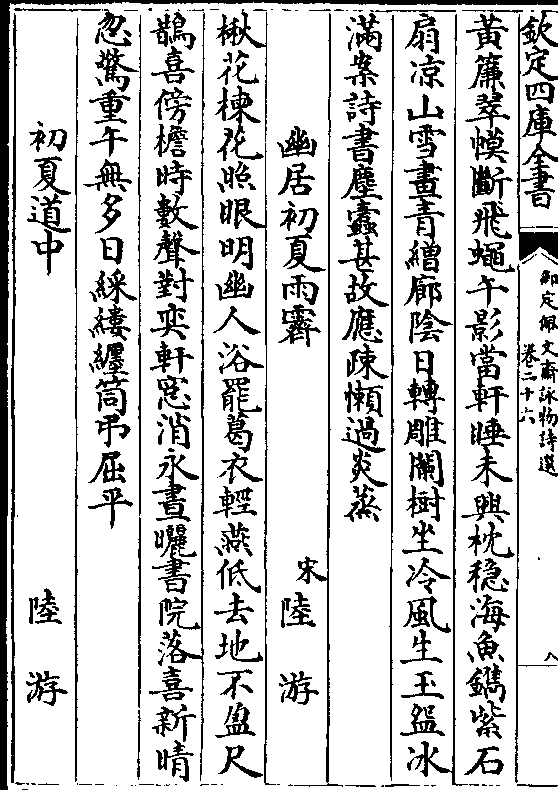 欽定四庫全書
御定佩文齋詠物詩選
卷三十六
八
黃簾翠幙斷飛蠅午影當軒睡未興枕穩海魚鐫紫石
扇凉山雪畫青繒廊陰日轉雕闌樹坐冷風生玉盌冰
滿案詩書塵蠹甚故應疎懶過炎蒸
幽居初夏雨霽
宋陸游
楸花楝花照眼明幽人浴罷葛衣輕燕低去地不盈尺
鵲喜傍檐時數聲對奕軒窓消永晝曬書院落喜新晴
忽驚重午無多日綵縷纏筒弔屈平
初夏道中
陸游